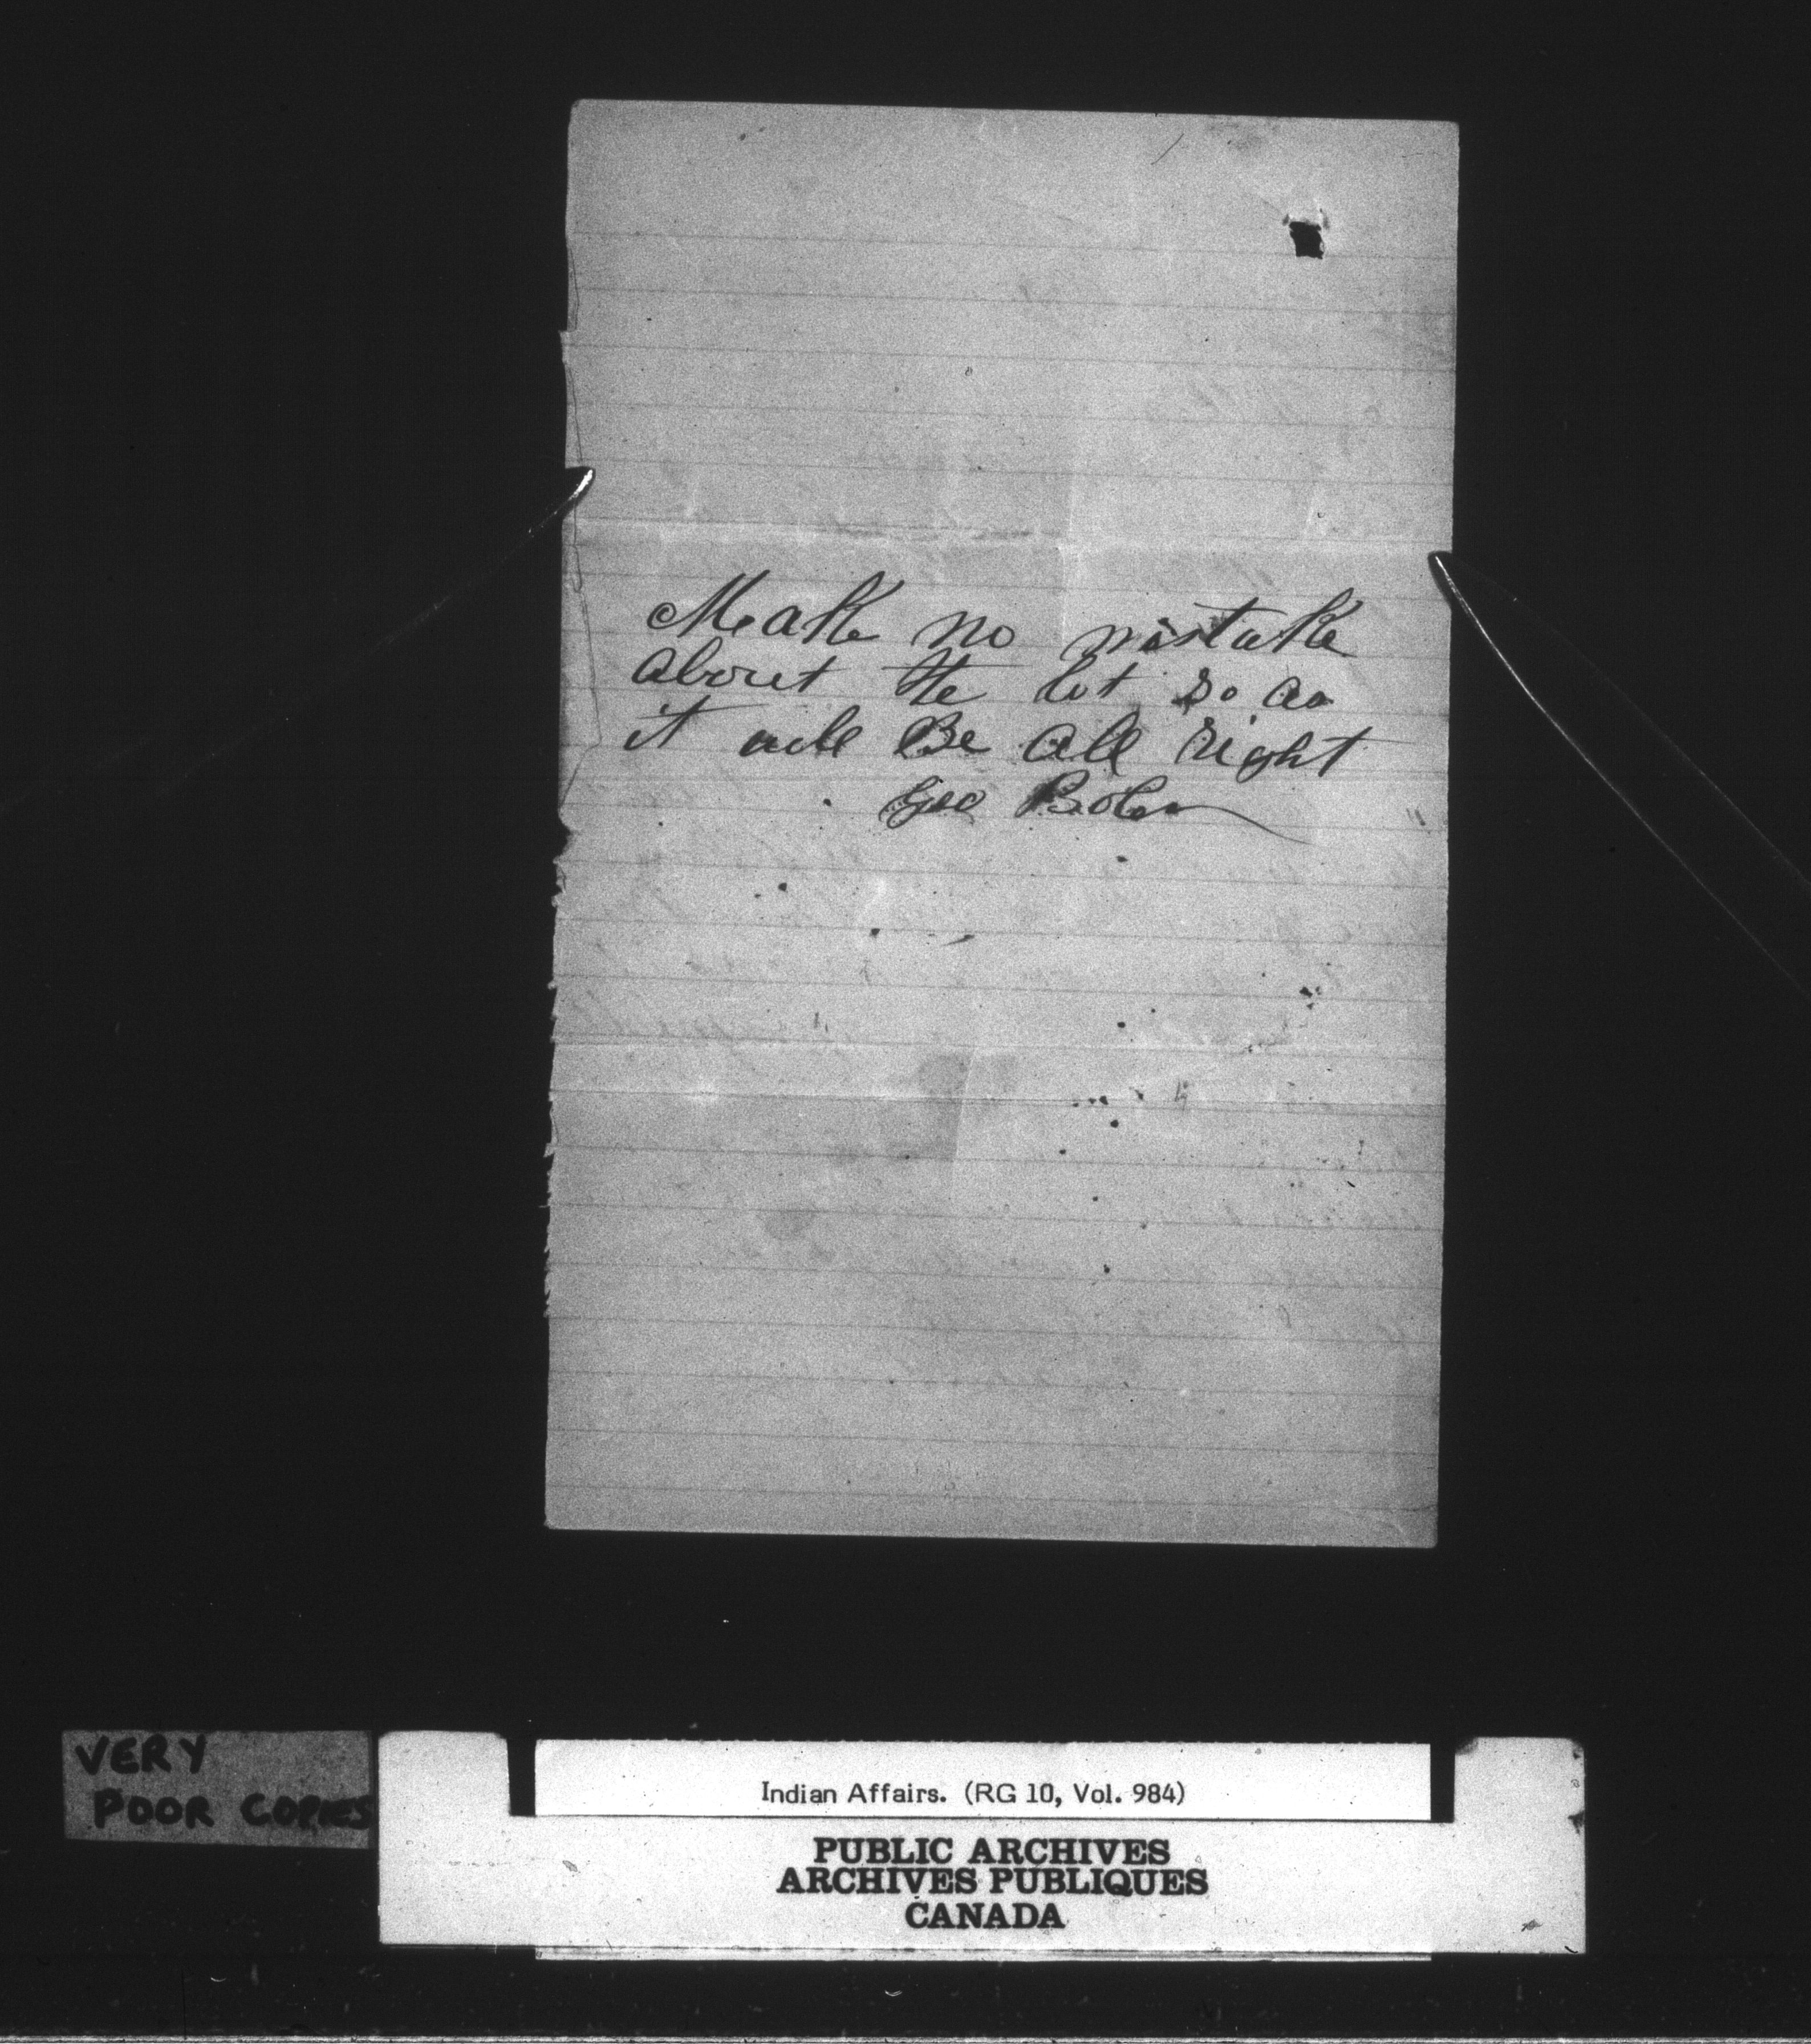 Meake no mistake
about the lot so as
it will Be all right
Geo
VERY
POOR COPIES
Indian Affairs. (RG 10, Vol. 984)
PUBLIC ARCHIVES
ARCHIVES PUBLIQUES
CANADA